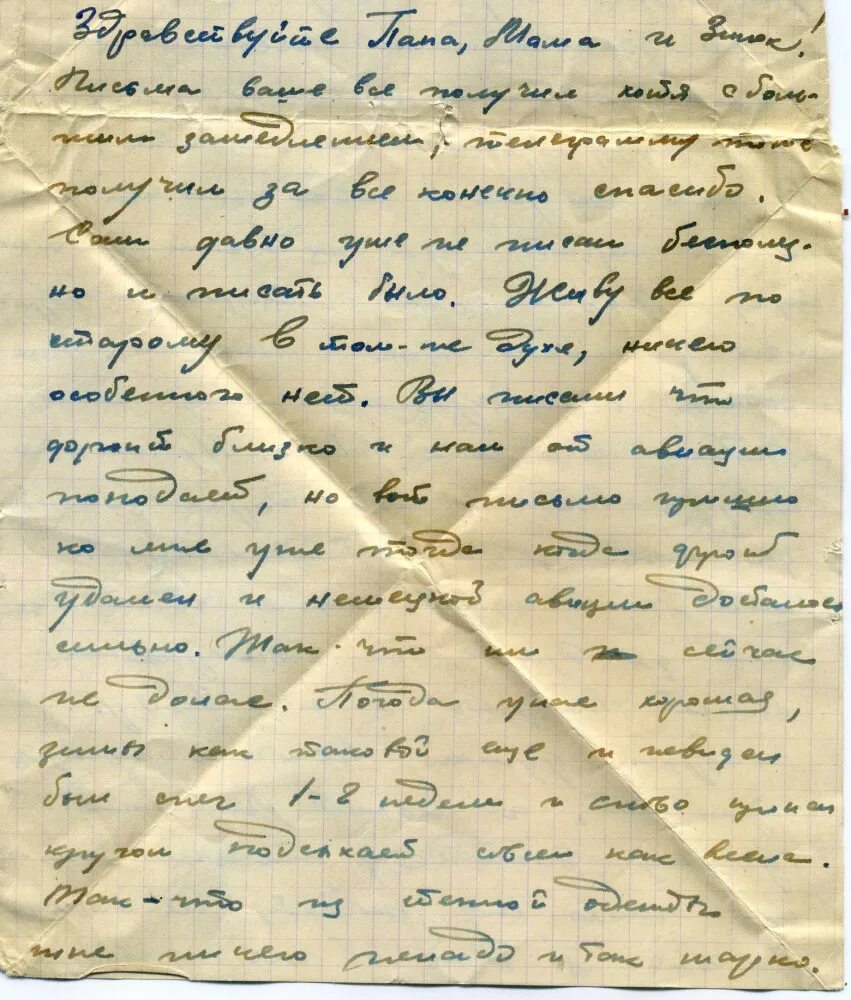 Здравствуйте Папа, Мама и Зинок!
Письма ваше все получил хотя с боль-
шим замедлением, телеграмму тоже
получил за все конечно спасибо.
Сам давно уже не писал
но и писать было. Живу все по
старому в том-же духе, ничего
особенного нет. Вы писали что
фронт близко и нам от авиации
попадает, но вот письмо пришло
ко мне уже тогда когда фронт
удален и немецкой авиации досталось
сильно. Так-что им сейчас
не до нас. Погода у нас хорошая,
зимы как таковой еще и невидел
был снег 1-2 недели и снова
кругом подсыхает совсем как весна.
Так-что из теплой одежды
мне ничего ненадо и так жарко.